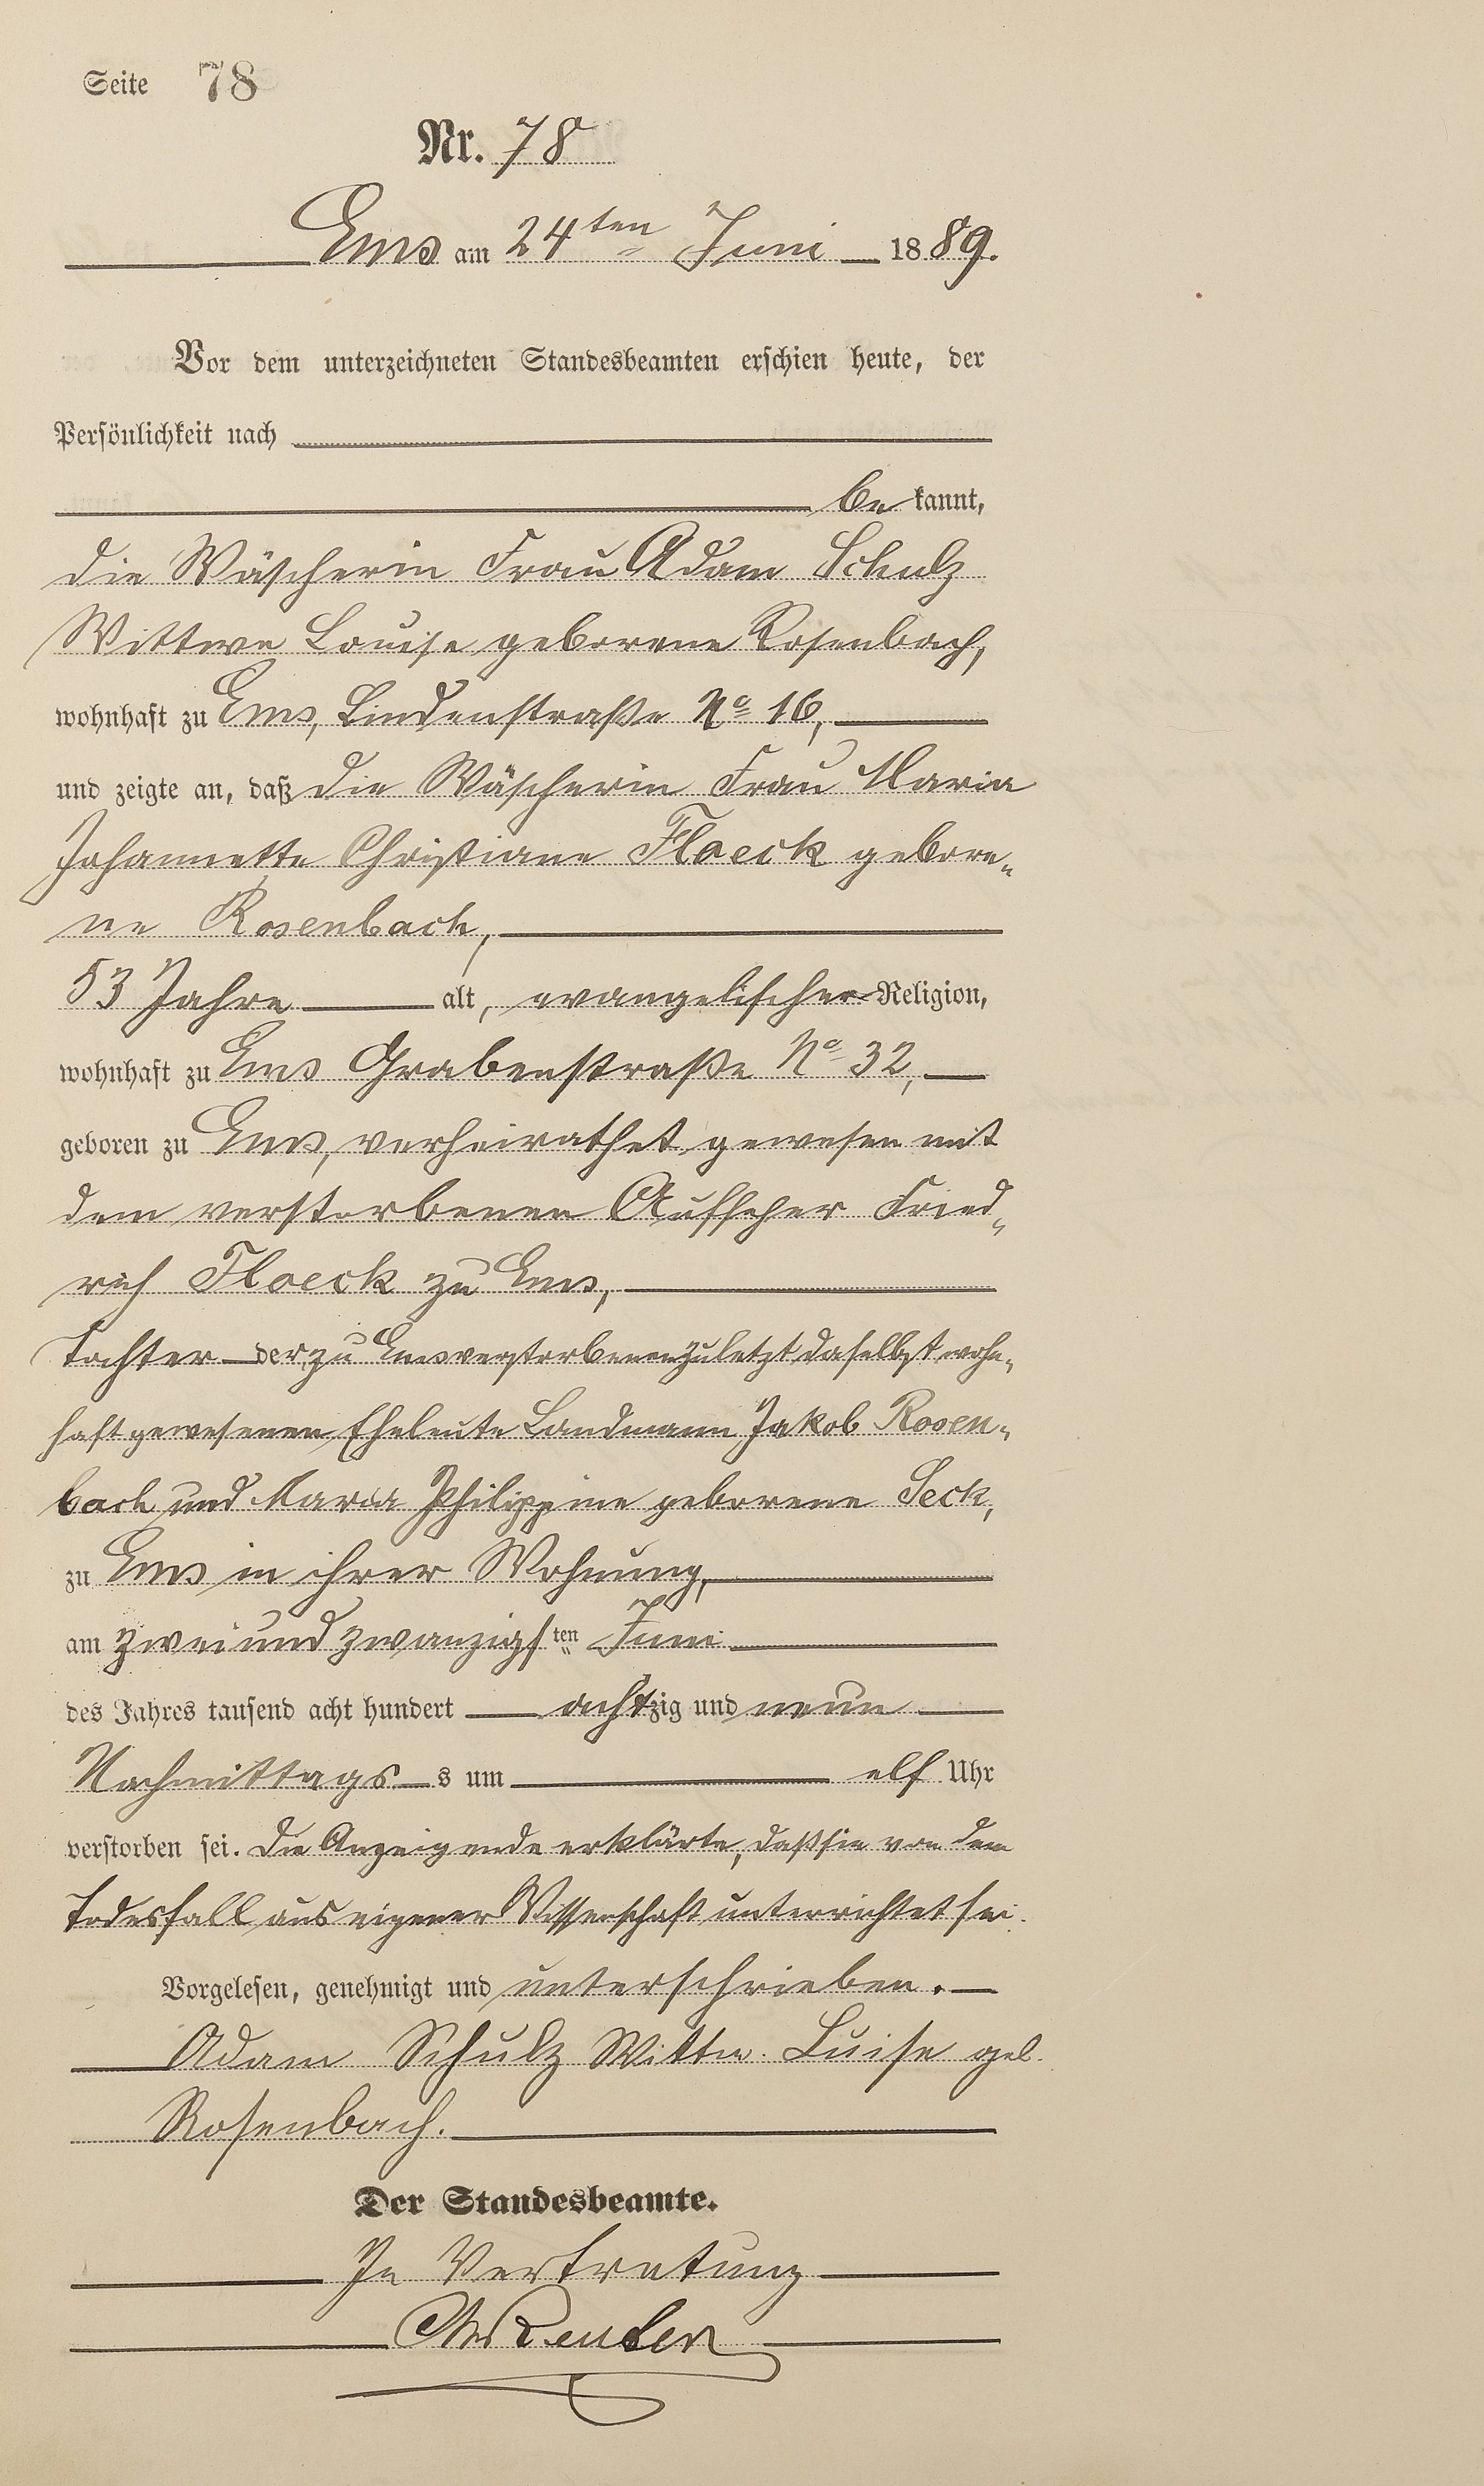 Seite 78
Nr. 78
Ems am 24ten Juni 1889.
Vor dem unterzeichneten Standesbeamten erschien heute, der
Persönlichkeit nach
bekannt,
die Wäscherin Frau Adam Schulz
Wittwe Louise geborene Rosenbach,
wohnhaft zu Ems, Lindenstraße No 16,
und zeigte an, daß die Wäscherin Frau Maria
Johannette Christiane Floeck gebore„
ne Rosenbach,
53 Jahre alt, evangelischer Religion,
wohnhaft zu Ems Grabenstraße No 32,
geboren zu Ems, verheirathet gewesen mit
dem verstorbenen Aufseher Fried„
rich Floeck zu Ems,
Tochter der zu Ems verstorbenen zuletzt daselbst wohn„
haft gewesenen Eheleute Landmann Jakob Rosen„
bach und Maria Philippine geborene Seck,
zu Ems in ihrer Wohnung,
am zweiundzwanzigsten Juni
des Jahres tausend acht hundert achtzig und neun
Nachmittags s um elf Uhr
verstorben sei. Die Anzeigende erklärte, daß sie von dem
Todesfall aus eigener Wissenschaft unterrichtet sei.
Vorgelesen, genehmigt und unterschrieben.
Adam Schulz Wittw. Luise geb.
Rosenbach.
Der Standesbeamte.
In Vertretung